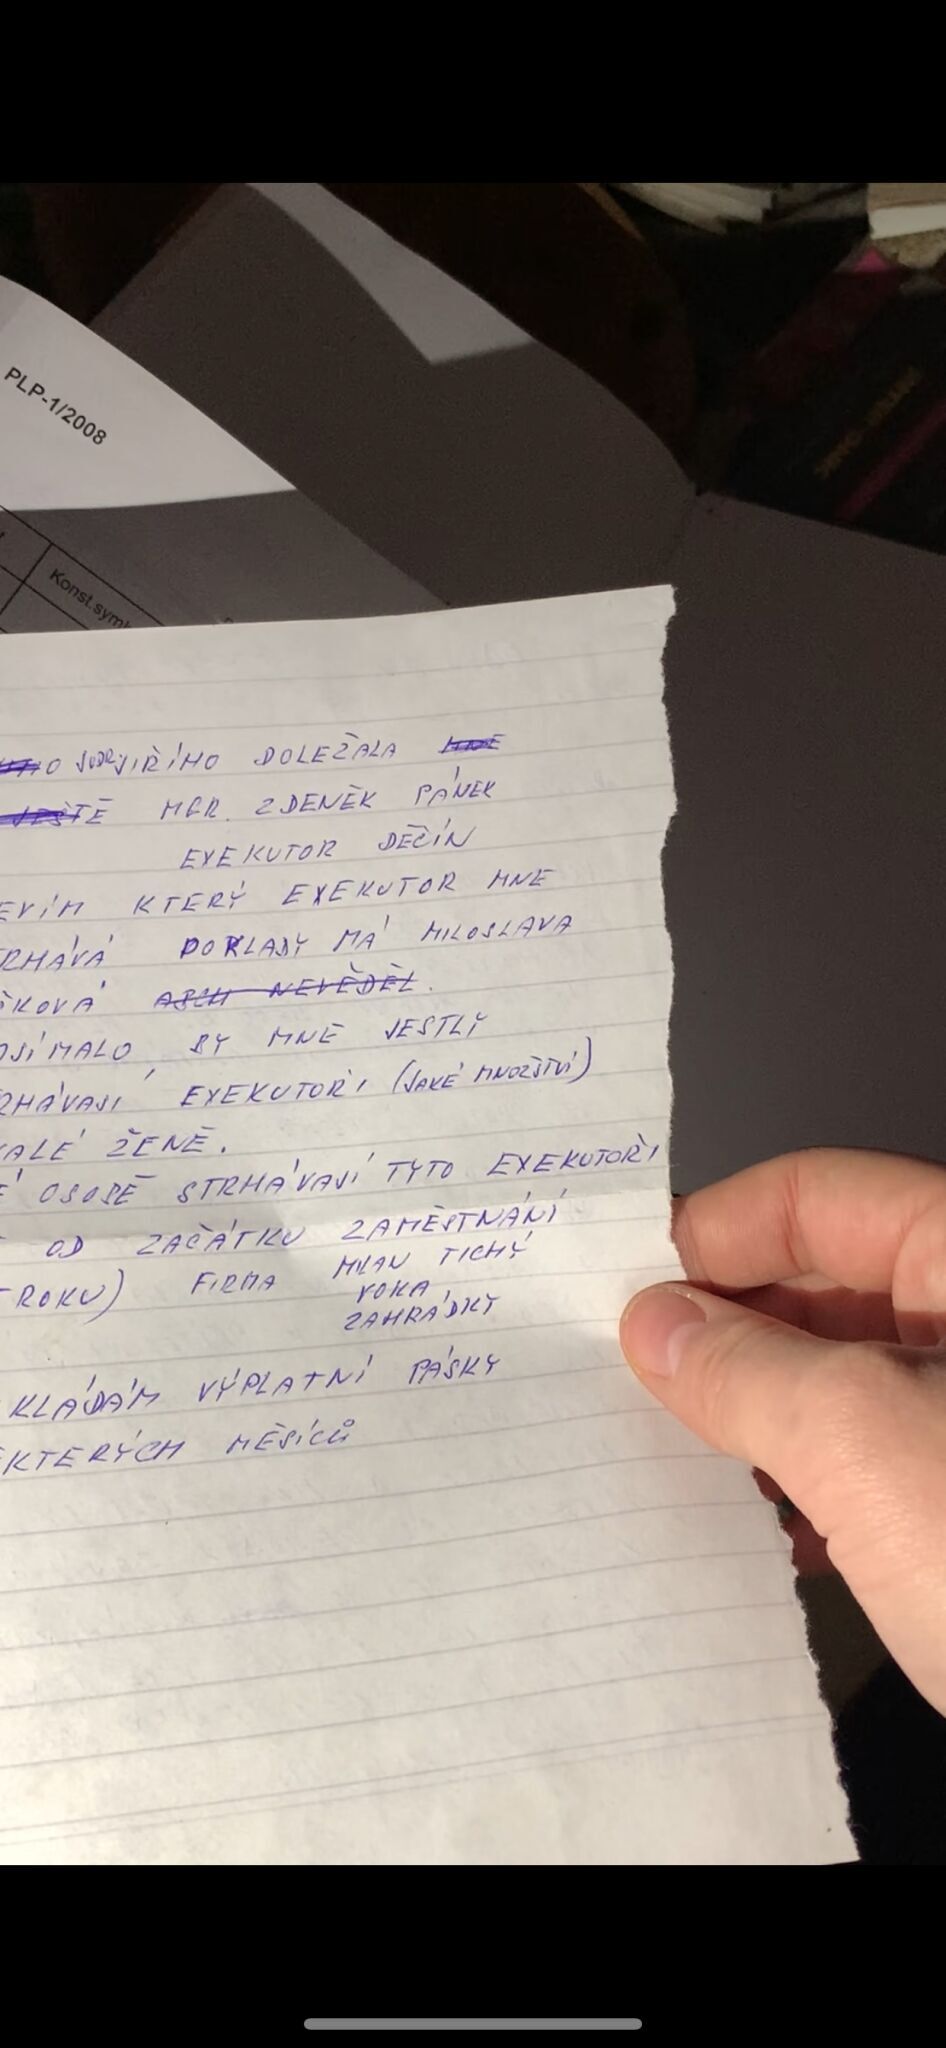 PLP-1/2008
Konst.symb
O JUDR JIŘÍHO DOLEŽALA MNE
JEŠTĚ MGR. ZDENĚK PÁNEK
EXEKUTOR DĚČÍN
EVÍM KTERÝ EXEKUTOR MNE
RHÁVÁ DOKLADY MÁ MILOSLAVA
ŠKOVÁ ABCH NEVĚDĚL.
JÍMALO BY MNE JESTLY
RHÁVAJÍ EXEKUTOŘI (JAKÉ MNOŽSTVÍ)
ALÉ ŽENĚ.
É OSOBĚ STRHÁVAJÍ TYTO EXEKUTOŘI
OD ZAČÁTKU ZAMĚSTNÁNÍ
ROKU) FIRMA MILAN TICHÝ
VOKA
ZAHRÁDKY
KLÁDÁM VÝPLATNÍ PÁSKY
EKTERÝCH MĚSÍCŮ